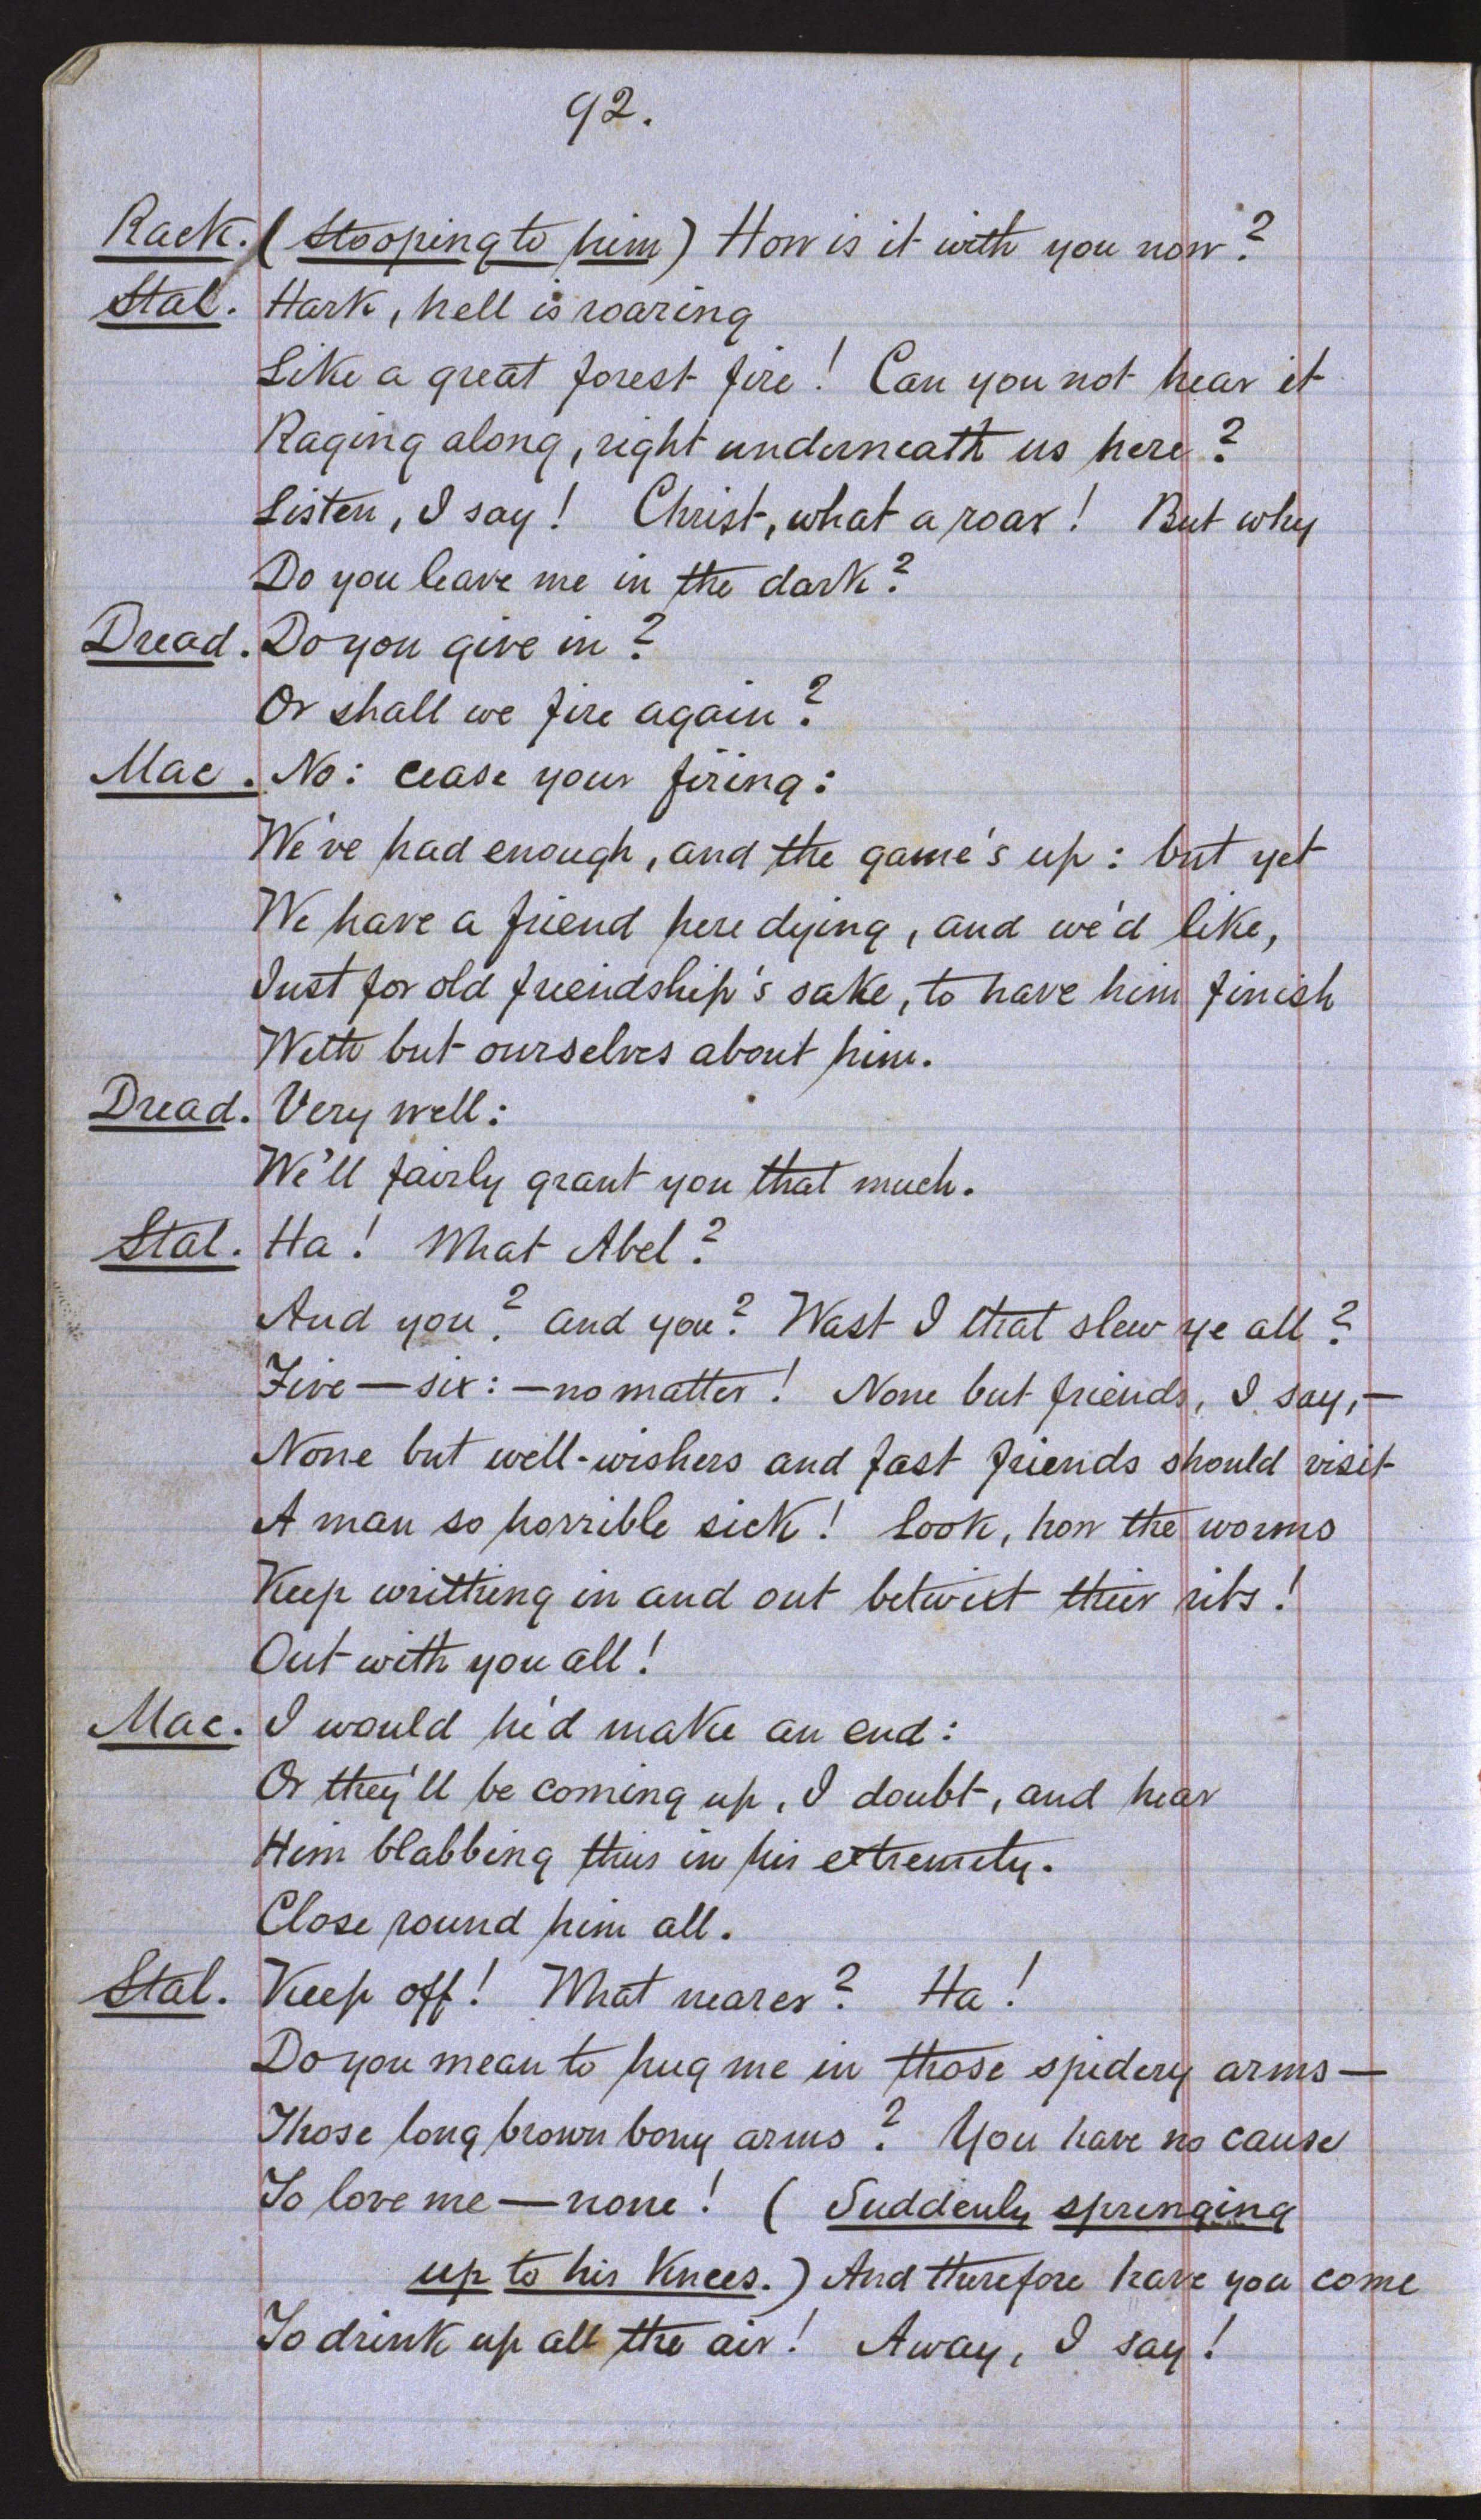 92.
Rack. (stooping to him) How is it with you now?
Stal. Hark, hell is roaring
Like a great forest fire! Can you not hear it
Raging along, right underneath us here?
Listen, I say! Christ, what a roar! But why
Do you leave me in the dark?
Dread. Do you give in?
Or shall we fire again?
Mac. No: cease your firing:
We've had enough, and the game's up: but yet
We have a friend here dying, and we'd like,
Just for old friendship's sake, to have him finish
With but ourselves about him.
Dread. Very well:
We'll fairly grant you that much.
Stal. Ha! What Abel?
And you? and you? Wast I that slew ye all?
Five—six:—no matter! None but friends, I say,—
None but well-wishers and fast friends should visit
A man so horrible sick! Look, how the worms
Keep writhing in and out betwixt their ribs!
Out with you all!
Mac. I would he'd make an end:
Or they'll be coming up, I doubt, and hear
Him blabbing thus in his extremity.
Close round him all.
Stal. Keep off! What nearer? Ha!
Do you mean to hug me in those spidery arms—
Those long brown bony arms? You have no cause
To love me—none! (Suddenly springing
up to his knees.) And therefore have you come
To drink up all the air! Away, I say!